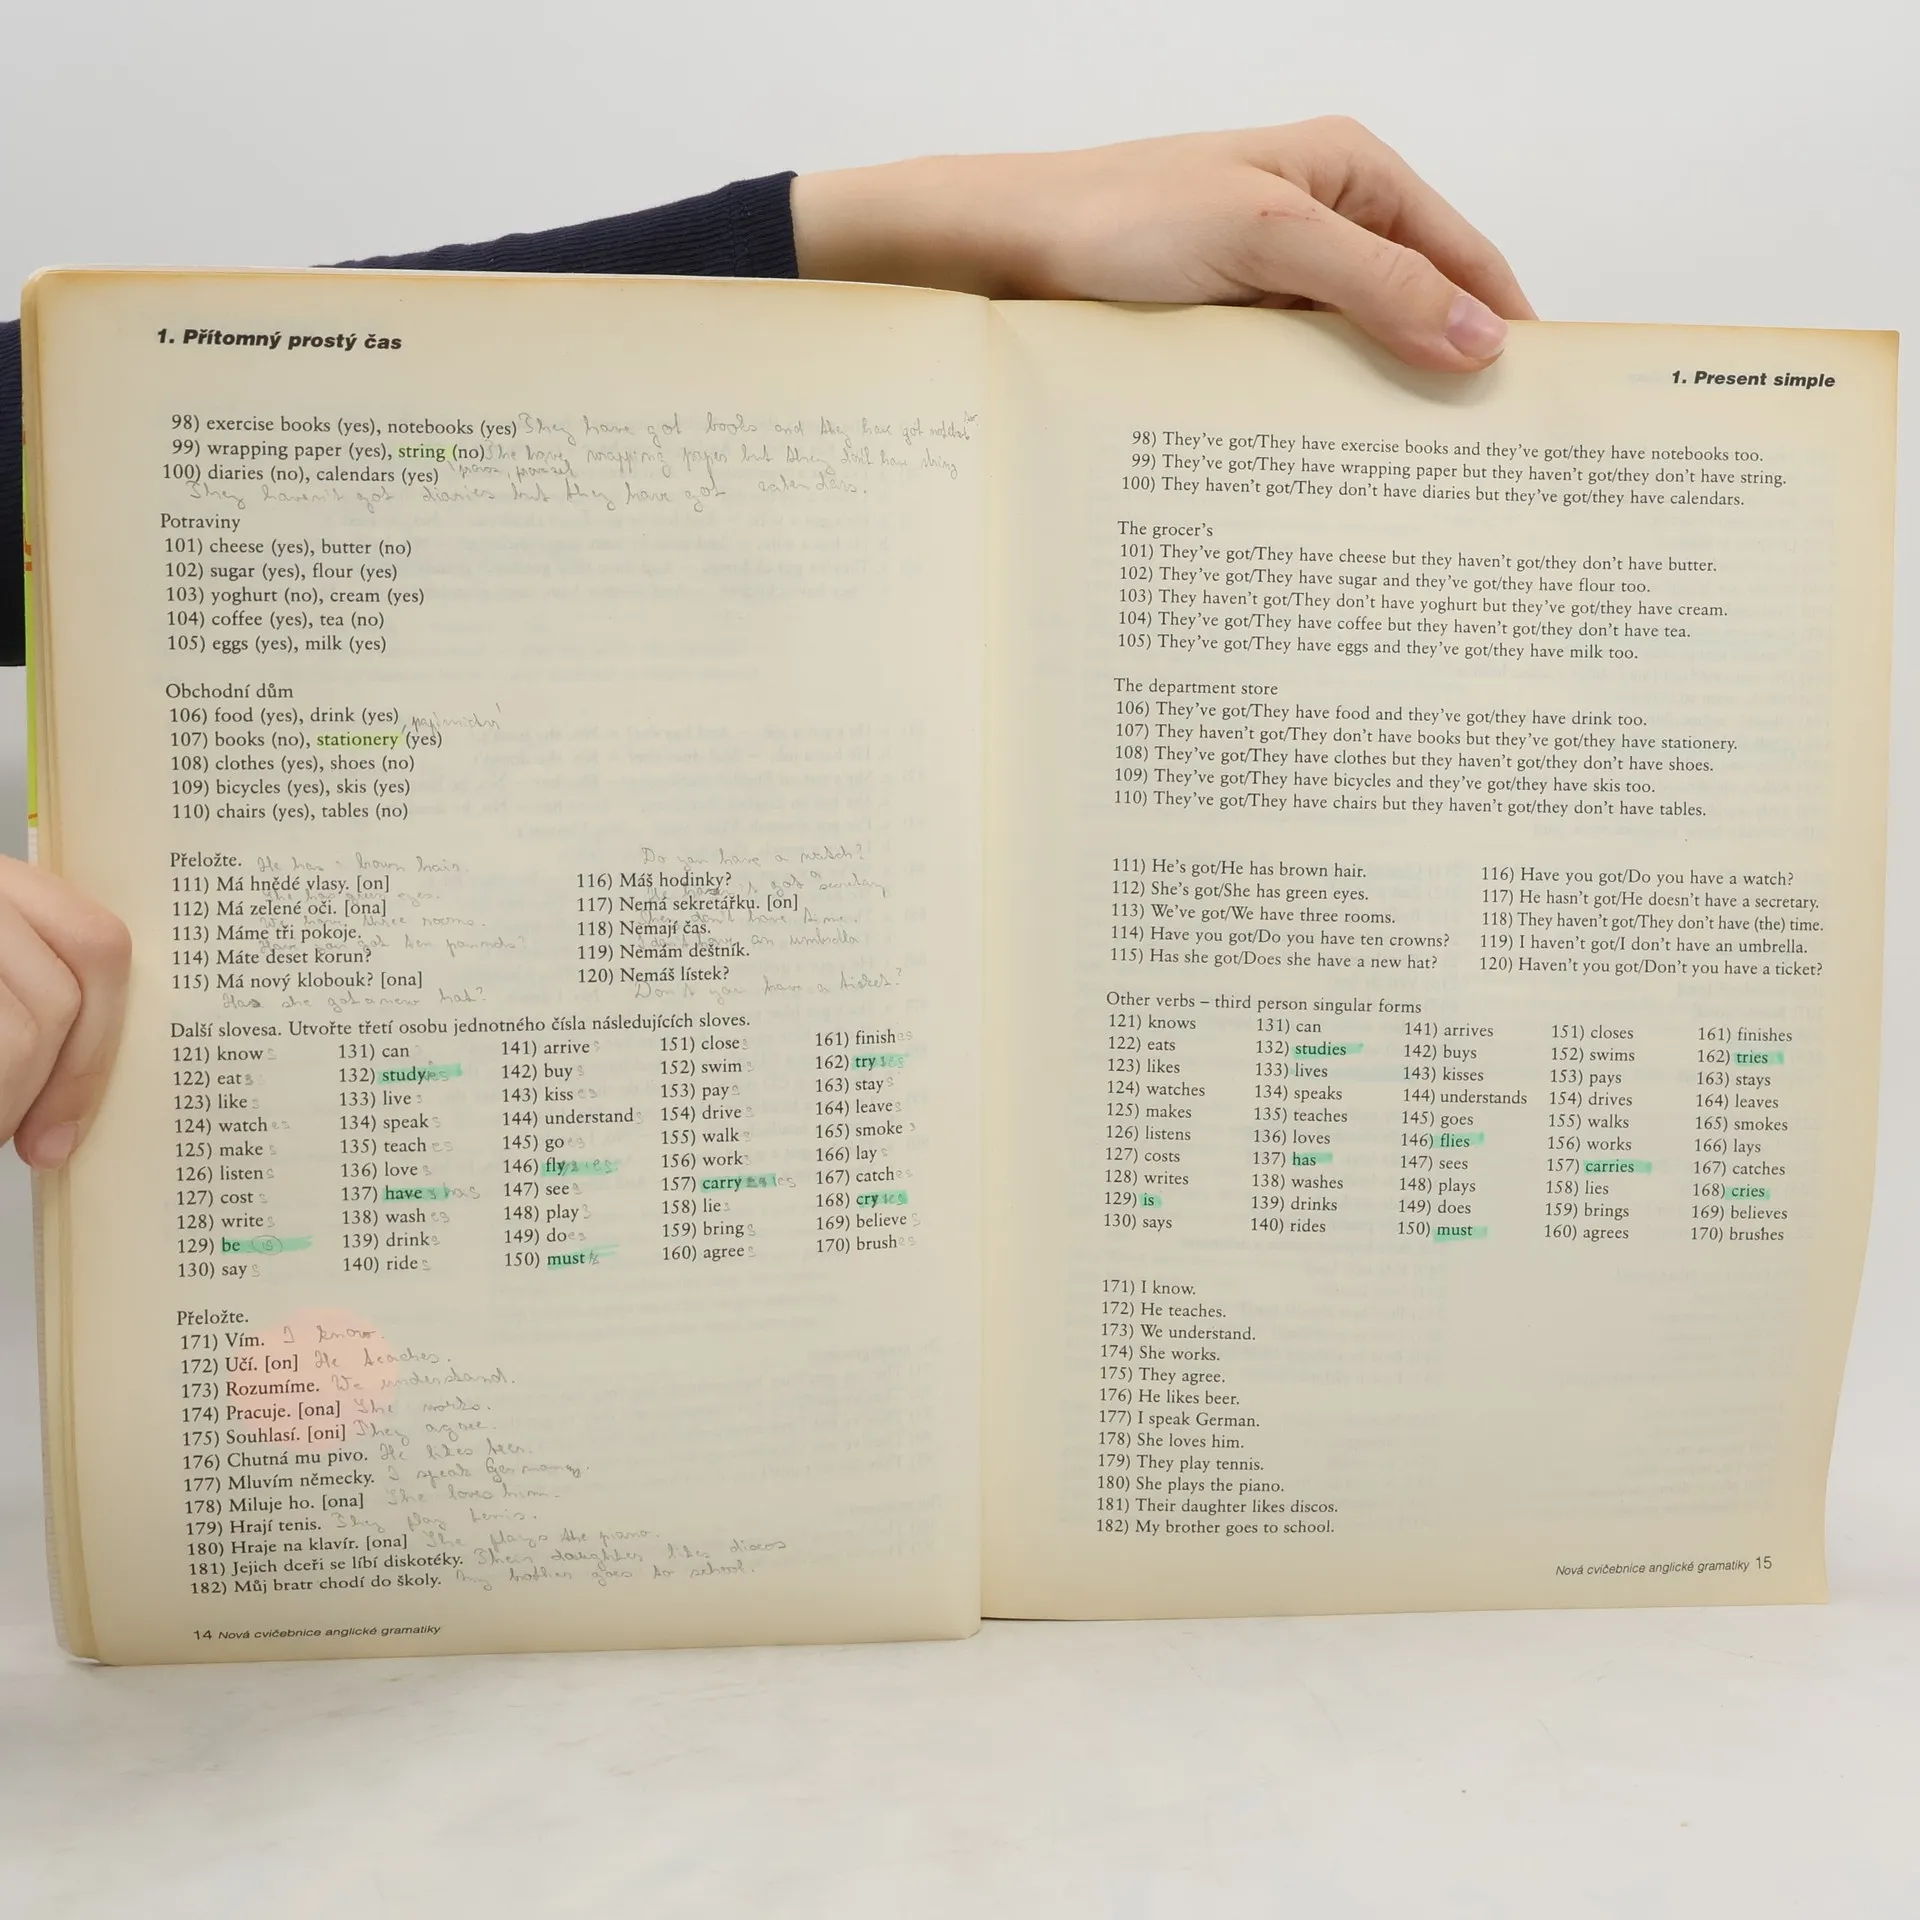 1. Přítomný prostý čas
98) exercise books (yes), notebooks (yes) They have got books and they have got
99) wrapping paper (yes), string (no) She have wrapping paper but they don't have string
100) diaries (no), calendars (yes)
They haven't got diaries but they have got calendars.
Potraviny
101) cheese (yes), butter (no)
102) sugar (yes), flour (yes)
103) yoghurt (no), cream (yes)
104) coffee (yes), tea (no)
105) eggs (yes), milk (yes)
Obchodní dům
106) food (yes), drink (yes)
papírnictví
107) books (no), stationery (yes)
108) clothes (yes), shoes (no)
109) bicycles (yes), skis (yes)
110) chairs (yes), tables (no)
Přeložte. He has brown hair.
111) Má hnědé vlasy. [on]
She has green eyes.
112) Má zelené oči. [ona]
We have three rooms.
113) Máme tři pokoje.
Have you got ten pounds?
114) Máte deset korun?
115) Má nový klobouk? [ona]
Has she got a new hat?
Do you have a watch?
116) Máš hodinky?
He hasn't got a secretary
117) Nemá sekretářku. [on]
They don't have time.
118) Nemají čas.
I don't have an umbrella
119) Nemám deštník.
120) Nemáš lístek?
Don't you have a ticket?
Další slovesa. Utvořte třetí osobu jednotného čísla následujících sloves.
121) knows
122) eats
123) likes
124) watches
125) makes
126) listens
127) costs
128) writes
129) be is
130) says
131) can
132) studyies
133) lives
134) speaks
135) teaches
136) loves
137) haves has
138) washes
139) drinks
140) rides
141) arrives
142) buys
143) kisses
144) understands
145) goes
146) flys ies
147) sees
148) plays
149) does
150) must
151) closes
152) swims
153) pays
154) drives
155) walks
156) works
157) carry ies
158) lies
159) brings
160) agrees
161) finishes
162) tryies
163) stays
164) leaves
165) smokes
166) lays
167) catches
168) cryies
169) believes
170) brushes
Přeložte.
171) Vím. I know.
172) Učí. [on] He teaches.
173) Rozumíme. We understand.
174) Pracuje. [ona] She works.
175) Souhlasí. [oni] They agree.
176) Chutná mu pivo. He likes beer.
177) Mluvím německy. I speak Germany.
178) Miluje ho. [ona] She loves him.
179) Hrají tenis. They play tenis.
180) Hraje na klavír. [ona] She plays the piano.
181) Jejich dceři se líbí diskotéky. Their daughter likes discos
182) Můj bratr chodí do školy. My brother goes to school.
14 Nová cvičebnice anglické gramatiky
1. Present simple
98) They've got/They have exercise books and they've got/they have notebooks too.
99) They've got/They have wrapping paper but they haven't got/they don't have string.
100) They haven't got/They don't have diaries but they've got/they have calendars.
The grocer's
101) They've got/They have cheese but they haven't got/they don't have butter.
102) They've got/They have sugar and they've got/they have flour too.
103) They haven't got/They don't have yoghurt but they've got/they have cream.
104) They've got/They have coffee but they haven't got/they don't have tea.
105) They've got/They have eggs and they've got/they have milk too.
The department store
106) They've got/They have food and they've got/they have drink too.
107) They haven't got/They don't have books but they've got/they have stationery.
108) They've got/They have clothes but they haven't got/they don't have shoes.
109) They've got/They have bicycles and they've got/they have skis too.
110) They've got/They have chairs but they haven't got/they don't have tables.
111) He's got/He has brown hair.
112) She's got/She has green eyes.
113) We've got/We have three rooms.
114) Have you got/Do you have ten crowns?
115) Has she got/Does she have a new hat?
116) Have you got/Do you have a watch?
117) He hasn't got/He doesn't have a secretary.
118) They haven't got/They don't have (the) time.
119) I haven't got/I don't have an umbrella.
120) Haven't you got/Don't you have a ticket?
Other verbs – third person singular forms
121) knows
122) eats
123) likes
124) watches
125) makes
126) listens
127) costs
128) writes
129) is
130) says
131) can
132) studies
133) lives
134) speaks
135) teaches
136) loves
137) has
138) washes
139) drinks
140) rides
141) arrives
142) buys
143) kisses
144) understands
145) goes
146) flies
147) sees
148) plays
149) does
150) must
151) closes
152) swims
153) pays
154) drives
155) walks
156) works
157) carries
158) lies
159) brings
160) agrees
161) finishes
162) tries
163) stays
164) leaves
165) smokes
166) lays
167) catches
168) cries
169) believes
170) brushes
171) I know.
172) He teaches.
173) We understand.
174) She works.
175) They agree.
176) He likes beer.
177) I speak German.
178) She loves him.
179) They play tennis.
180) She plays the piano.
181) Their daughter likes discos.
182) My brother goes to school.
Nová cvičebnice anglické gramatiky 15